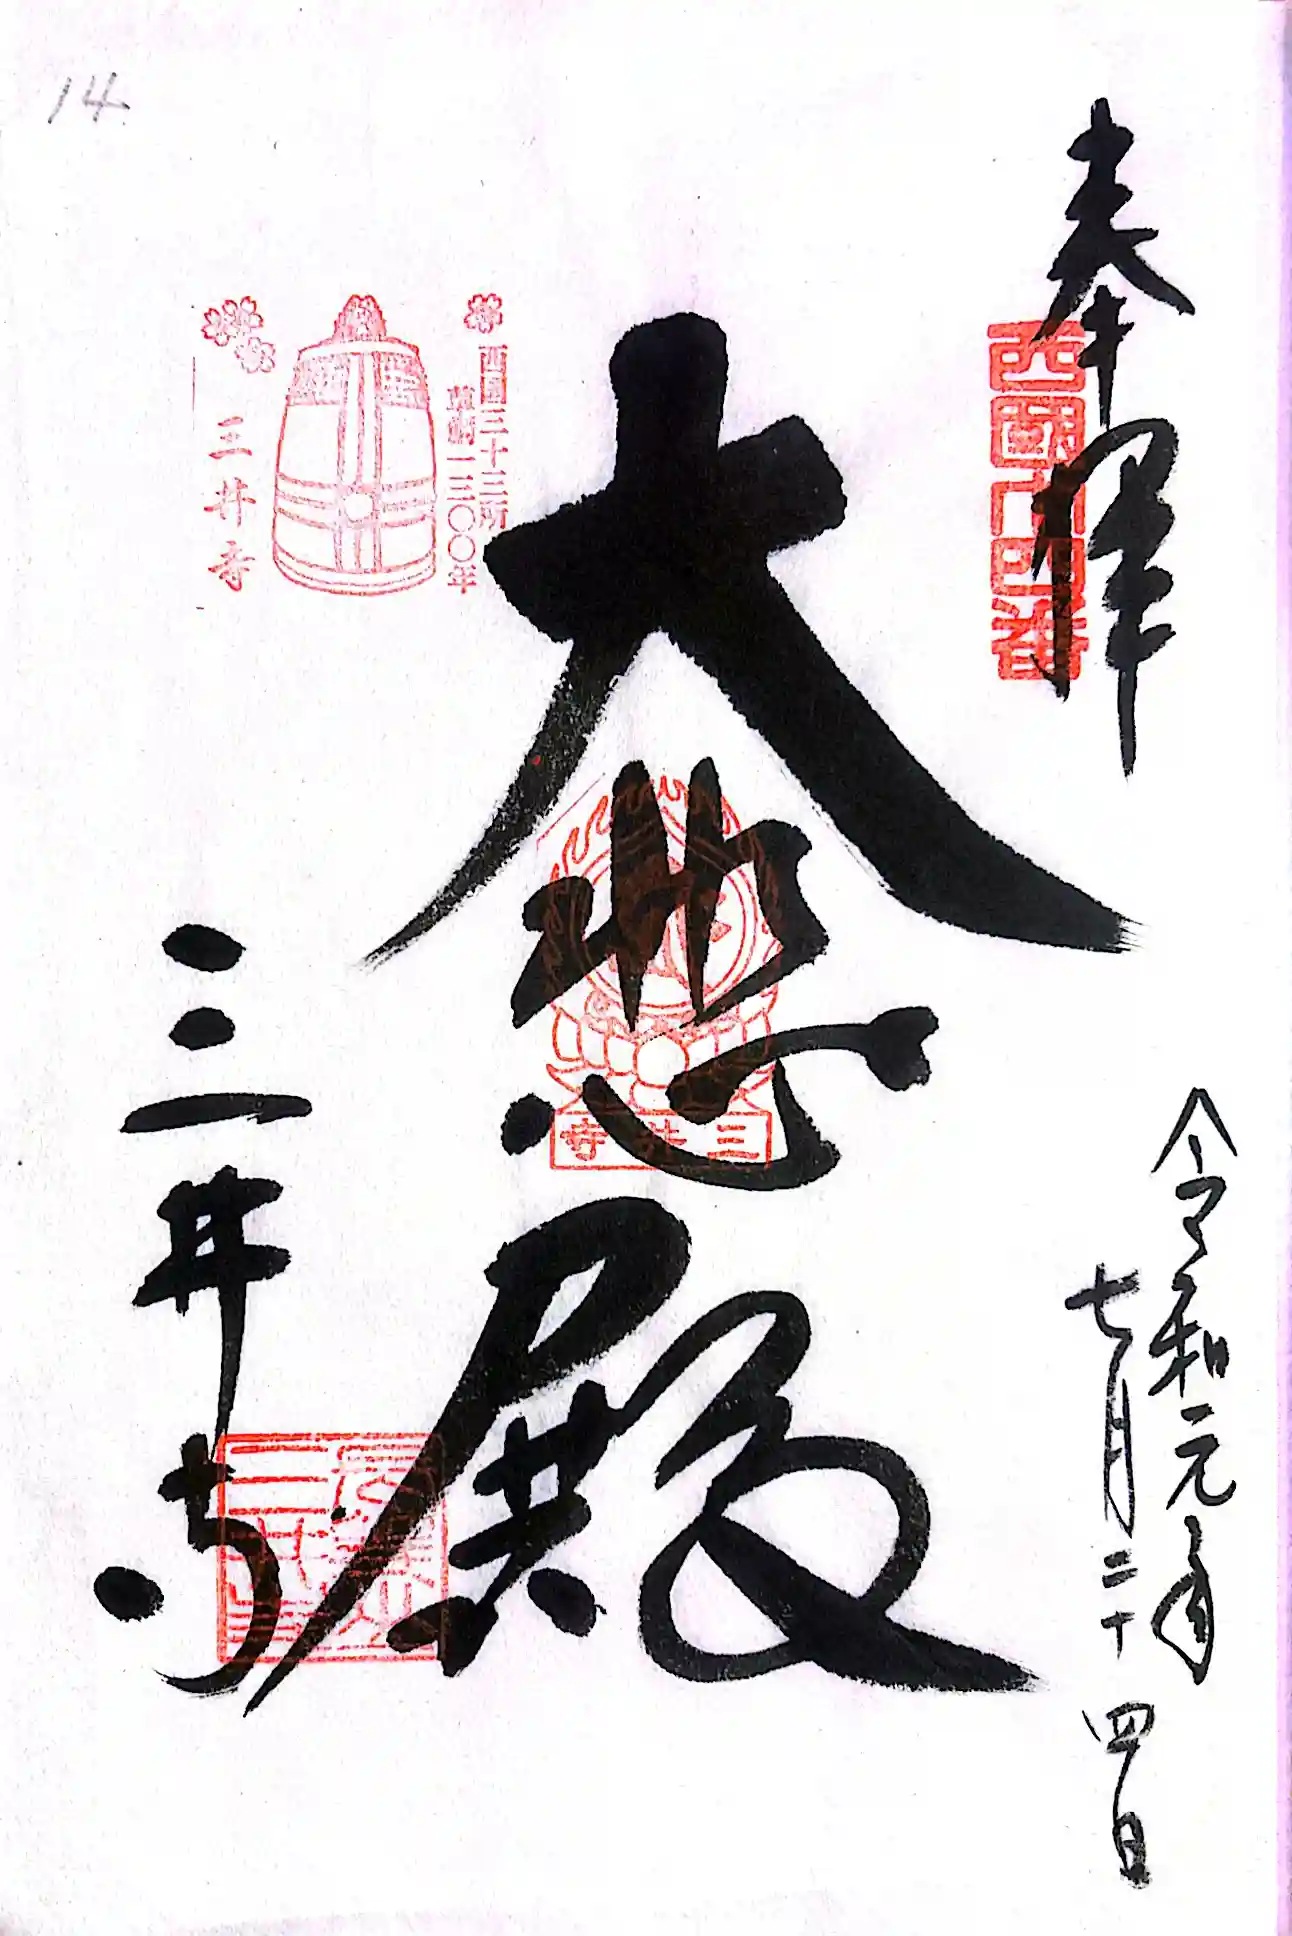 14
奉拝
西國十四番
令和元年
七月二十四日
大悲殿
三井寺
西国三十三所
草創一三〇〇年
三井寺
三井寺